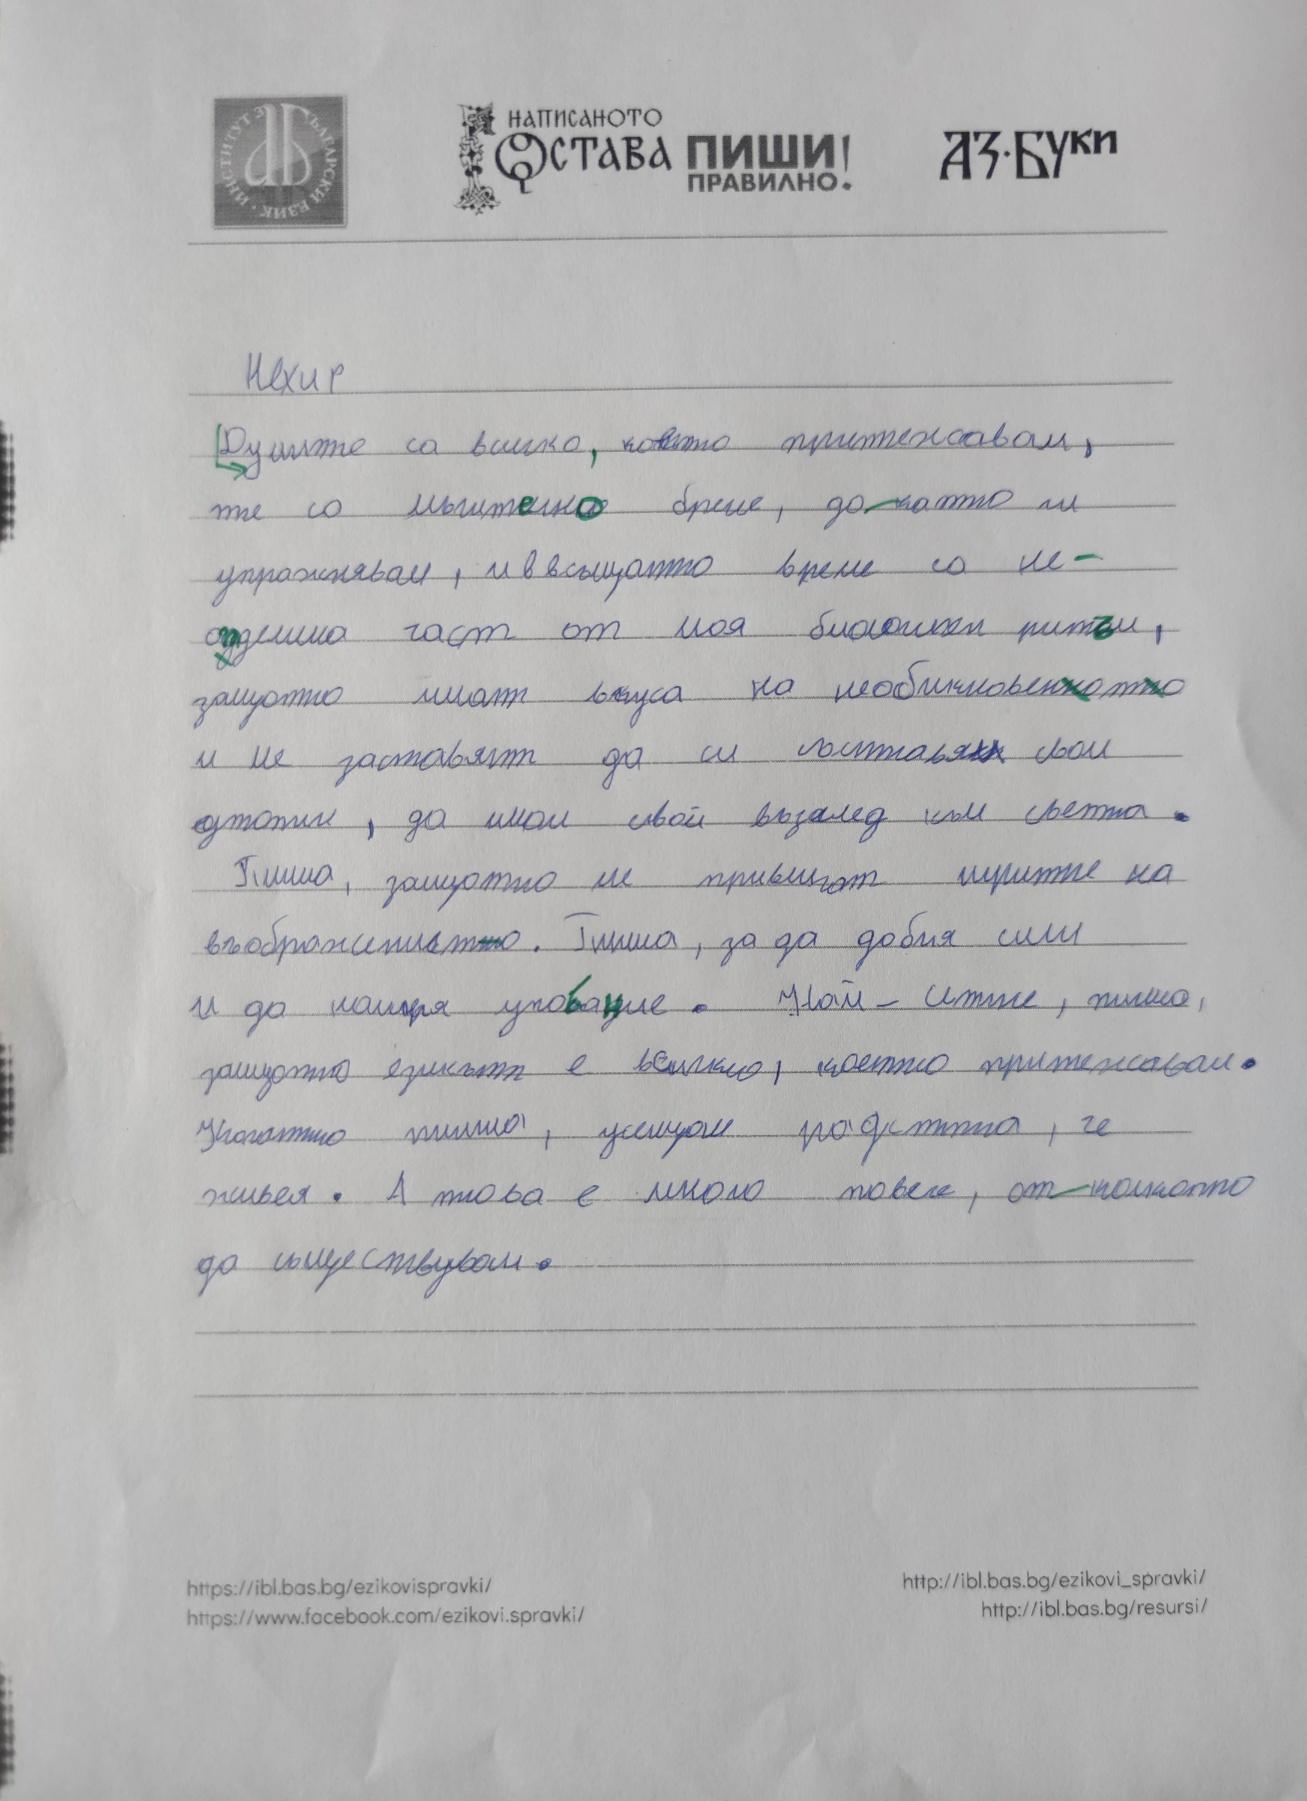 ИНСТИТУТ ЗА БЪЛГАРСКИ ЕЗИК
НАПИСАНОТО
ОСТАВА ПИШИ
ПРАВИЛНО!
АЗ·БУКИ
Нехир
Думите са всичко, което притежавам,
те са мъчително бреме, до като ги
упражнявам, и в същото време са не-
оделима част от моя биологичен ритъм,
защото имат вкуса на необикновенното
и ме заставят да си съставям свои
утопии, да имам свой възглед към света.
Пиша, защото ме привличат игрите на
въображението. Пиша, за да добия сили
и да намеря упование. Най-сетне, пиша,
защото езикът е всичко, което притежавам.
Когато пиша, усещам радостта, че
живея. А това е много повече, от колкото
да съществувам.
https://ibl.bas.bg/ezikovispravki/
https://www.facebook.com/ezikovi.spravki/
http://ibl.bas.bg/ezikovi_spravki/
http://ibl.bas.bg/resursi/